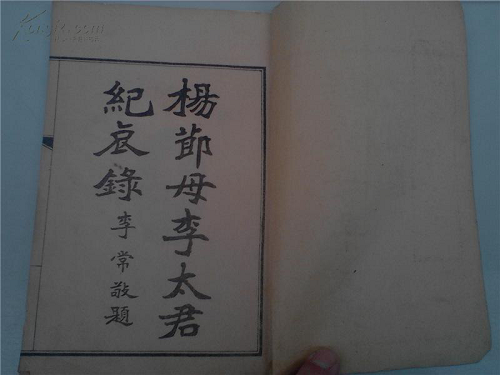 楊節母李太君
紀哀錄
李常敬題